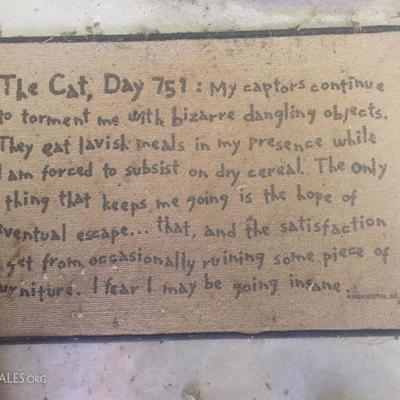 The Cat, Day 751: My captors continue
to torment me with bizarre dangling objects.
They eat lavish meals in my presence while
I am forced to subsist on dry cereal. The only
thing that keeps me going is the hope of
eventual escape... that, and the satisfaction
get from occasionally ruining some piece of
urniture. I fear I may be going insane.
ALES.ORG